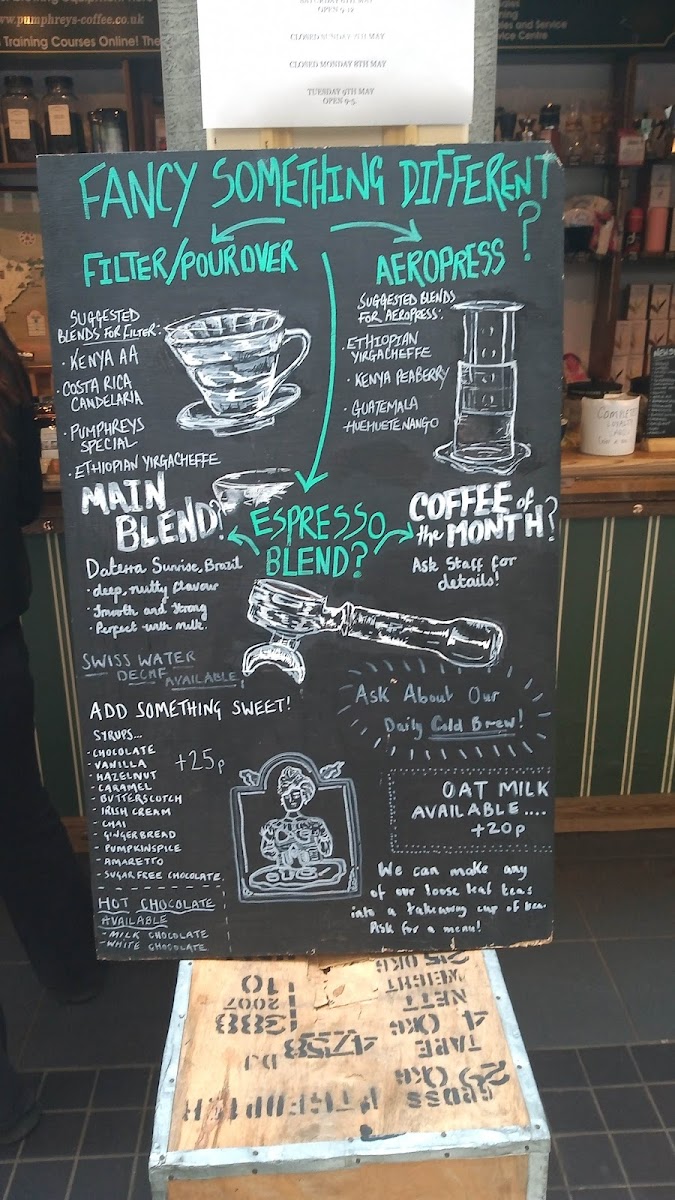 www.pumphreys-coffee.co.uk
Training Courses Online! The
and Service
vice Centre
OPEN 9-12
CLOSED SUNDAY 7TH MAY
CLOSED MONDAY 8TH MAY
TUESDAY 9TH MAY
OPEN 9-5
FANCY SOMETHING DIFFERENT
?
FILTER/POUROVER
SUGGESTED
BLENDS FOR FILTER:
· KENYA AA
· COSTA RICA
CANDELARIA
· PUMPHREYS
SPECIAL
· ETHIOPIAN YIRGACHEFFE
AEROPRESS
SUGGESTED BLENDS
FOR AEROPRESS:
· ETHIOPIAN
YIRGACHEFFE
· KENYA PEABERRY
· GUATEMALA
HUEHUETENANGO
MAIN
BLEND?
ESPRESSO
BLEND?
COFFEE of
the MONTH?
Ask Staff for
details!
Daterra Sunrise, Brazil
· deep, nutty flavour
· Smooth and Strong
· Perfect with milk.
SWISS WATER
DECAF AVAILABLE
ADD SOMETHING SWEET!
SYRUPS...
- CHOCOLATE
- VANILLA
- HAZELNUT
- CARAMEL
- BUTTERSCOTCH
- IRISH CREAM
- CHAI
- GINGERBREAD
- PUMPKINSPICE
- AMARETTO
- SUGAR FREE CHOCOLATE.
+25p
HOT CHOCOLATE
AVAILABLE
- MILK CHOCOLATE
- WHITE CHOCOLATE
Ask About Our
Daily Cold Brew!
OAT MILK
AVAILABLE....
+20p
We can make any
of our loose leaf teas
into a takeaway cup of tea
Ask for a menu!
NETT
WEIGHT
10
2007
1388
TARE
4 0KG
GROSS